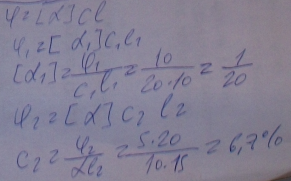 φ=[α]cl
φ₁=[α₁]c₁l₁
[α₁]=φ₁/c₁l₁=10/20·10=1/20
φ₂=[α]c₂l₂
c₂=φ₂/αl₂=5·20/10·15=6,7%